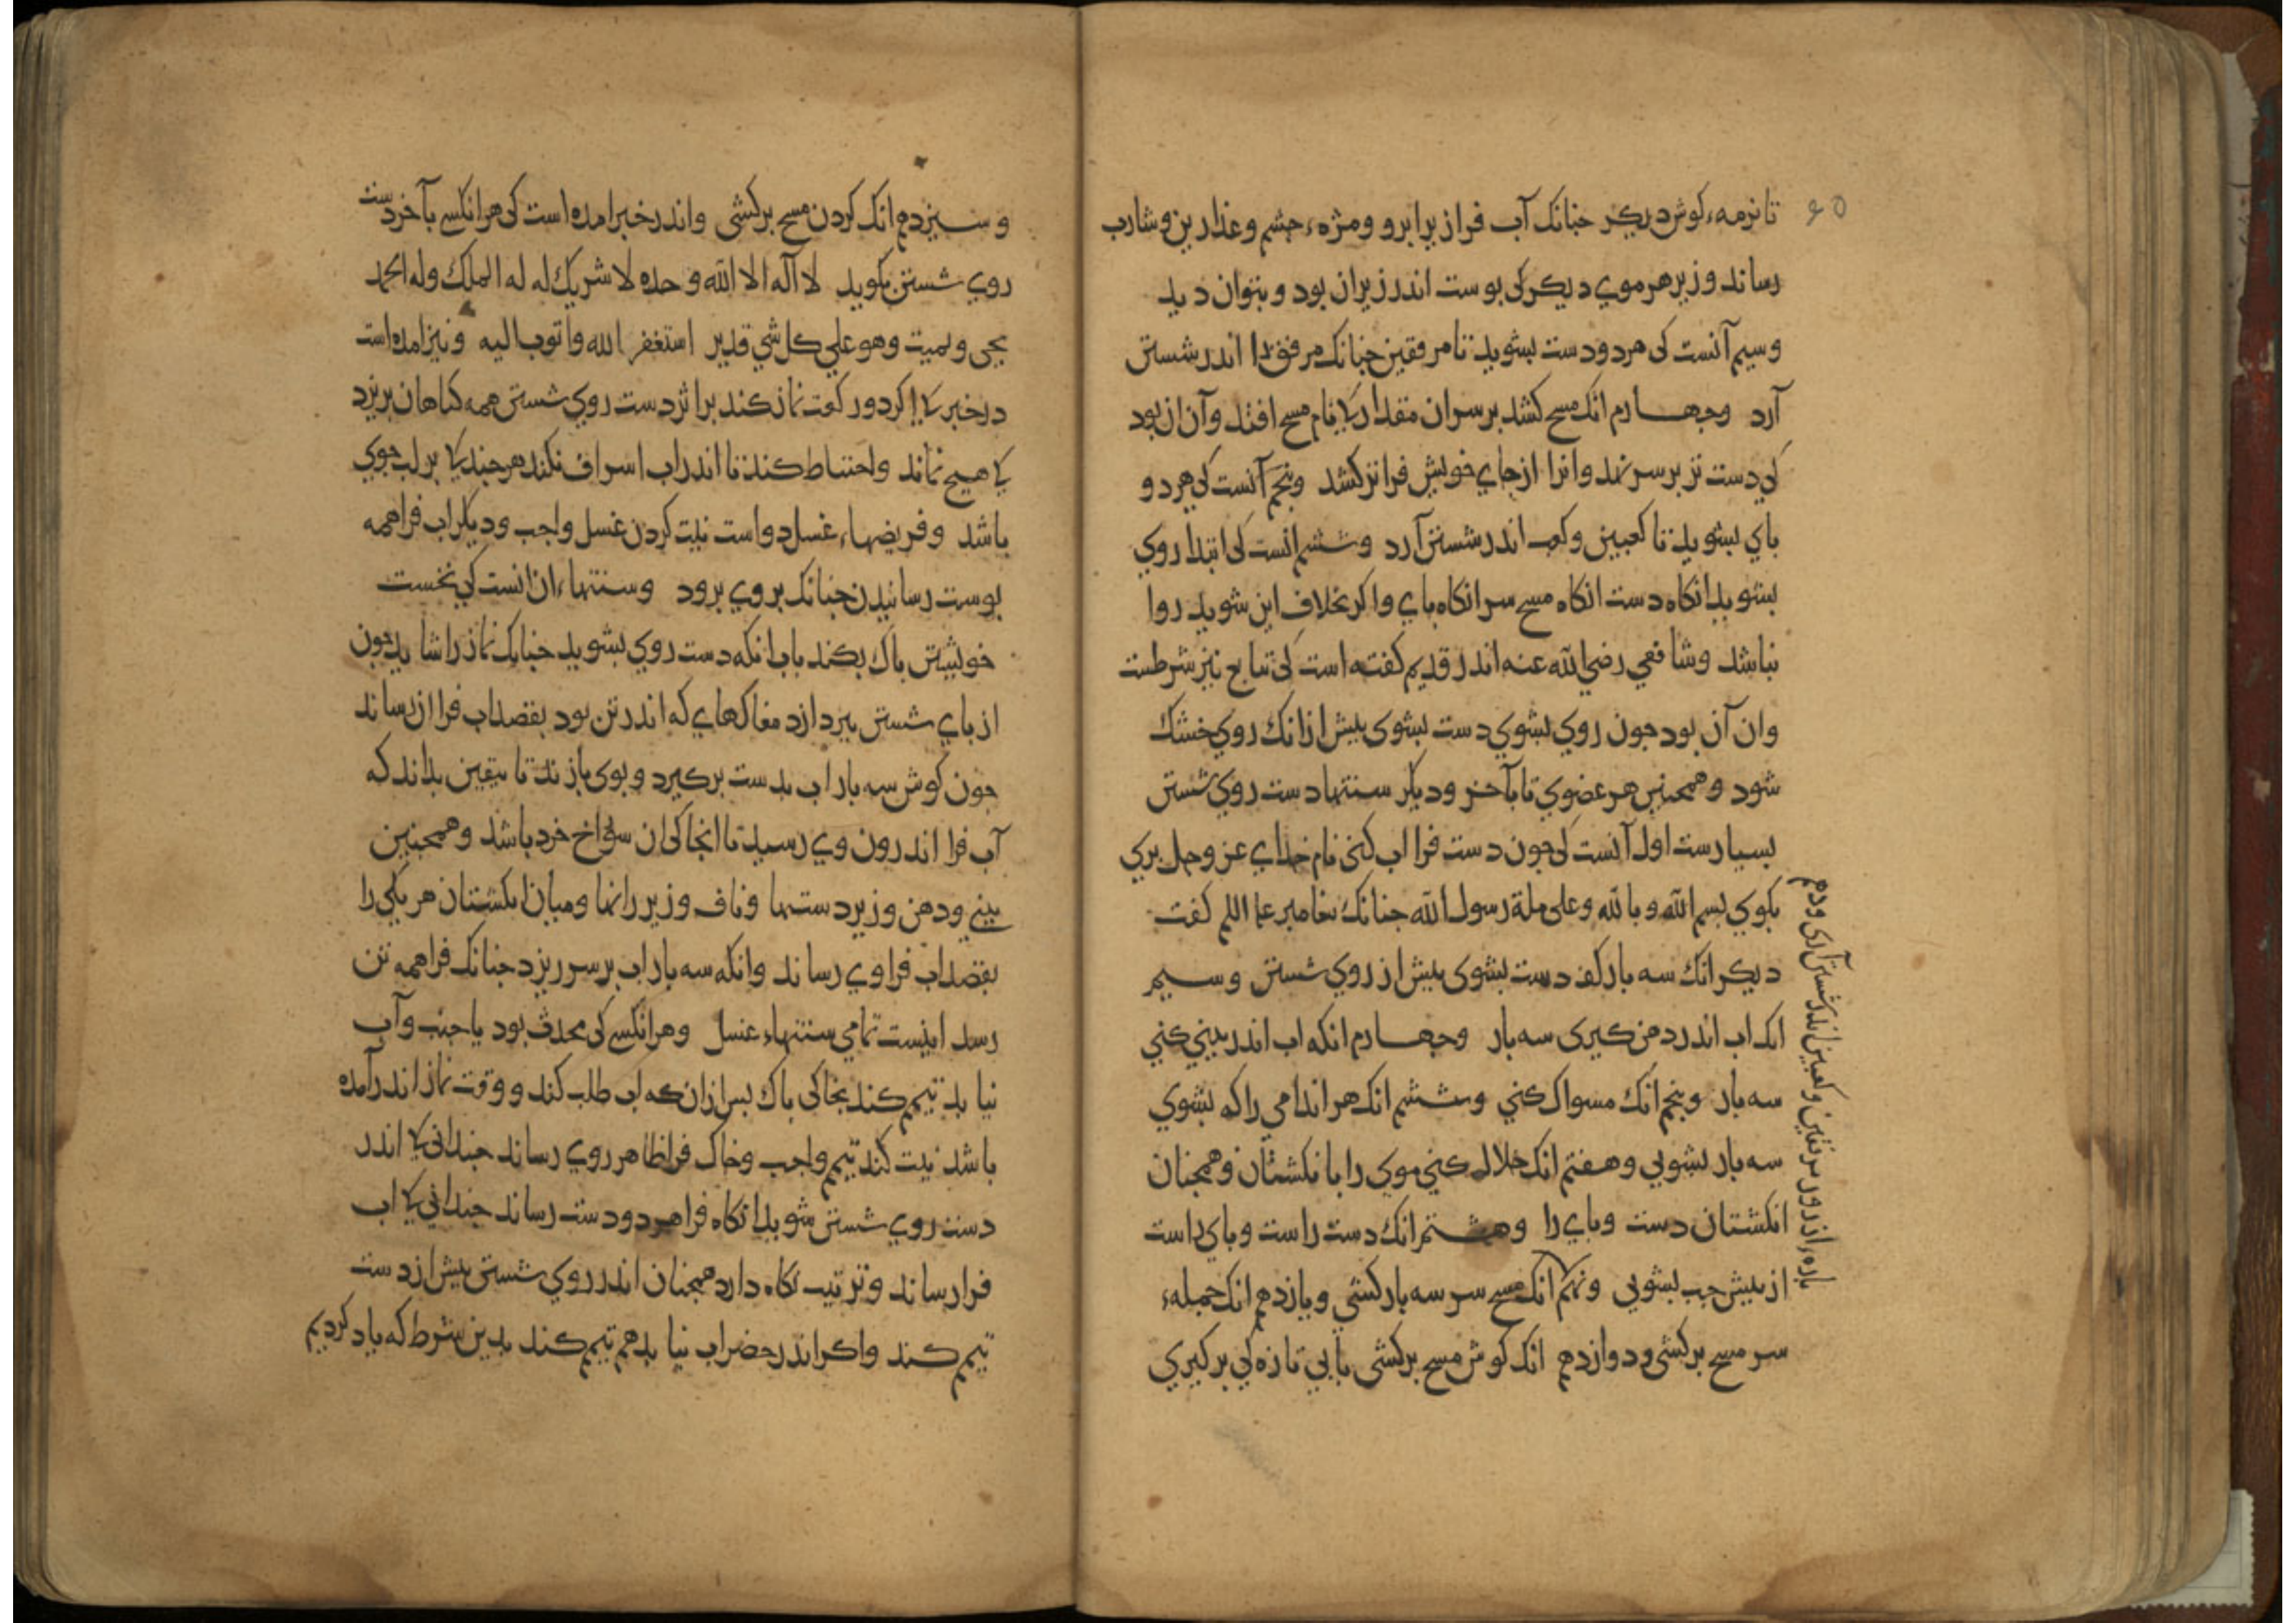 ۶۵
تا نرمهء کوش دیکر جنانک آب فراز برابرو ومژهء جشم وعذارین وشارب
رساند وزیر هر موی دیکر کی بوست اندر زیران بود وبتوان دید
وسیم آنست کی هردودست بشوید تا مرفقین جنانک مرفق را اندر شستن
آرد وجهارم انک مسح کشد برسران مقدار کا نام مسح افتد وآن ان بود
کی دست تر برسر نهد وانرا ازجای خویش فراتر کشد وبنجم آنست کی هردو
بای بشوید تا کعبین وکعب اندر شستن آرد وششم انست کی ابتدا روی
بشوید انکاه دست انکاه مسح سر انکاه بای واکر بخلاف این شوید روا
نباشد وشافعی رضی الله عنه اندر قدیم کفته است کی تتابع نیز شرطست
وان آن بود جون روی بشوی دست بشوی بیش ازانک روی خشک
شود وهمجنین هر عضوی تا بآخر ودیکر سنتهاء دست روی شستن
بسیارست اول آنست کی جون دست فرا اب کنی نام خدای عز وجل بری
بکوی بسم الله وبالله وعلی ملة رسول الله جنانک بیغامبر علیه السلم کفت
دیکر انک سه بار کف دست بشوی بیش از روی شستن وسیم
انک اب اندر دهن کیری سه بار وجهارم انکه اب اندر بینی کنی
سه بار وبنجم انک مسواک کنی وششم انک هر اندامی را که بشوی
سه بار بشویی وهفتم انک خلال کنی موی را بانکشتان وهمجنان
انکشتان دست وبای را وهشتم انک دست راست وبای راست
از بیش جب بشویی ونهم انک مسح سر سه بار کشی ویازدهم انک جملهء
سر مسح برکشی ودوازدهم انک کوش مسح برکشی بآبی تازه کی برکیری
بارهء از زور مرفقین وکعبین اندر شستن آری ودهم
وسیزدهم انک کردن مسح برکشی واندر خبر امده است کی هرانکسی بآخر دست
روی شستن بکوید لا اله الا الله وحده لا شریك له له الملك وله الحمد
یحی ویمیت وهو علی کل شی قدیر استغفر الله واتوب الیه ونیز امده است
درخبر کا اکر دو رکعت نماز کند براثر دست روی شستن همه کناهان بریزد
کا هیج نماند واحتیاط کند تا اندر اب اسراف نکند هرجند کا بر لب جوی
باشد وفریضهاء غسل دو است نیت کردن غسل واجب ودیکر اب فراهمه
بوست رسانیدن جنانک بروی برود وسنتهاء ان انست کی نخست
خویشتن باک بکند بآب انکه دست روی بشوید جنانک نماز را شاید جون
از بای شستن ببردازد مغاکهای که اندر تن بود بقصد اب فرا ان رساند
جون کوش سه بار اب بدست برکیرد وبوی بازند تا بیقین بداند که
آب فرا اندرون وی رسید تا انجا کی ان سولاخ خرد باشد وهمجنین
بینی ودهن وزیر دستها وناف وزیر رانها ومیان انکشتان هر یکی را
بقصد اب فرا وی رساند وانکه سه بار اب برسر ریزد جنانک فراهمه تن
رسد اینست تمامی سنتهاء غسل وهرانکسی کی محدث بود یا جنب وآب
نیابد تیمم کند بخاکی باک بس ازان که اب طلب کند ووقت نماز اندر آمده
باشد نیت کند تیمم واجب وخاک فرا ظاهر روی رساند جندانی کا اندر
دست روی شستن شوید انکاه فرا هردودست رساند جندانی کا اب
فرا رساند وترتیب نکاه دارد همجنان اندر روی شستن بیش از دست
تیمم کند واکر اندر حضر اب نیابد هم تیمم کند بدین شرط که یاد کردیم